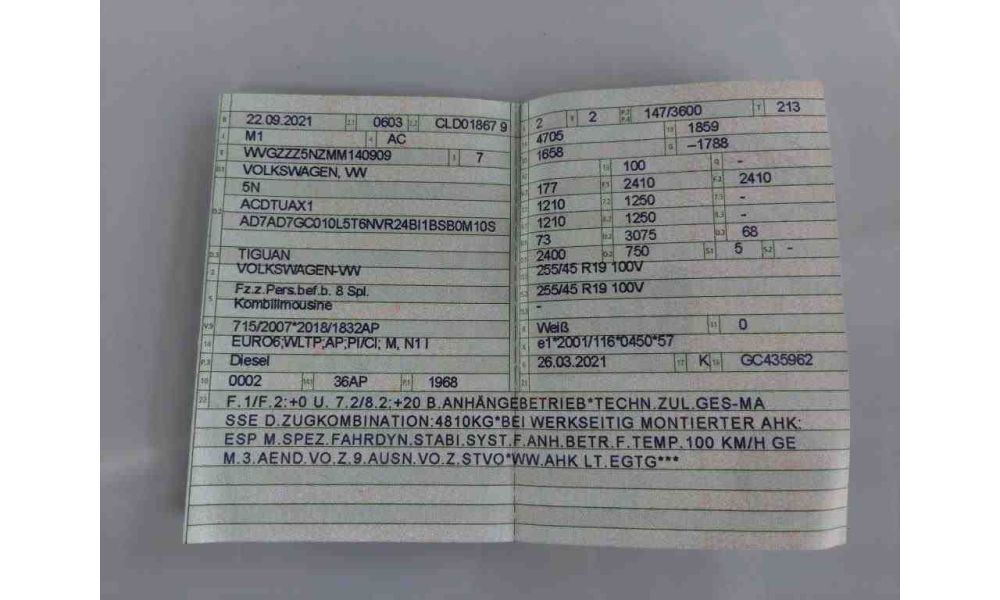 B 22.09.2021 2.1 0603 2.2 CLD01867 9
J M1 4 AC
E WVGZZZ5NZMM140909 3 7
D.1 VOLKSWAGEN, VW
5N
D.2 ACDTUAX1
AD7AD7GC010L5T6NVR24BI1BSB0M10S
D.3 TIGUAN
2 VOLKSWAGEN-VW
5 Fz.z.Pers.bef.b. 8 Spl.
Kombilimousine
V.9 715/2007*2018/1832AP
14 EURO6;WLTP;AP;PI/CI; M, N1 I
P.3 Diesel
10 0002 14.1 36AP P.1 1968
22 F.1/F.2:+0 U. 7.2/8.2:+20 B.ANHÄNGEBETRIEB*TECHN.ZUL.GES-MA
SSE D.ZUGKOMBINATION:4810KG*BEI WERKSEITIG MONTIERTER AHK:
ESP M.SPEZ.FAHRDYN.STABI.SYST.F.ANH.BETR.F.TEMP.100 KM/H GE
M.3.AEND.VO.Z.9.AUSN.VO.Z.STVO*WW.AHK LT.EGTG***
2 9 2 P.2 P.4 147/3600 T 213
4705 19 1859
1658 G –1788
13 100 Q -
177 F.1 2410 F.2 2410
1210 7.2 1250 7.3 -
1210 8.2 1250 8.3 -
73 U.2 3075 U.3 68
2400 O.2 750 S.1 5 S.2 -
255/45 R19 100V
255/45 R19 100V
-
Weiß 11 0
e1*2001/116*0450*57
26.03.2021 17 K 16 GC435962
21